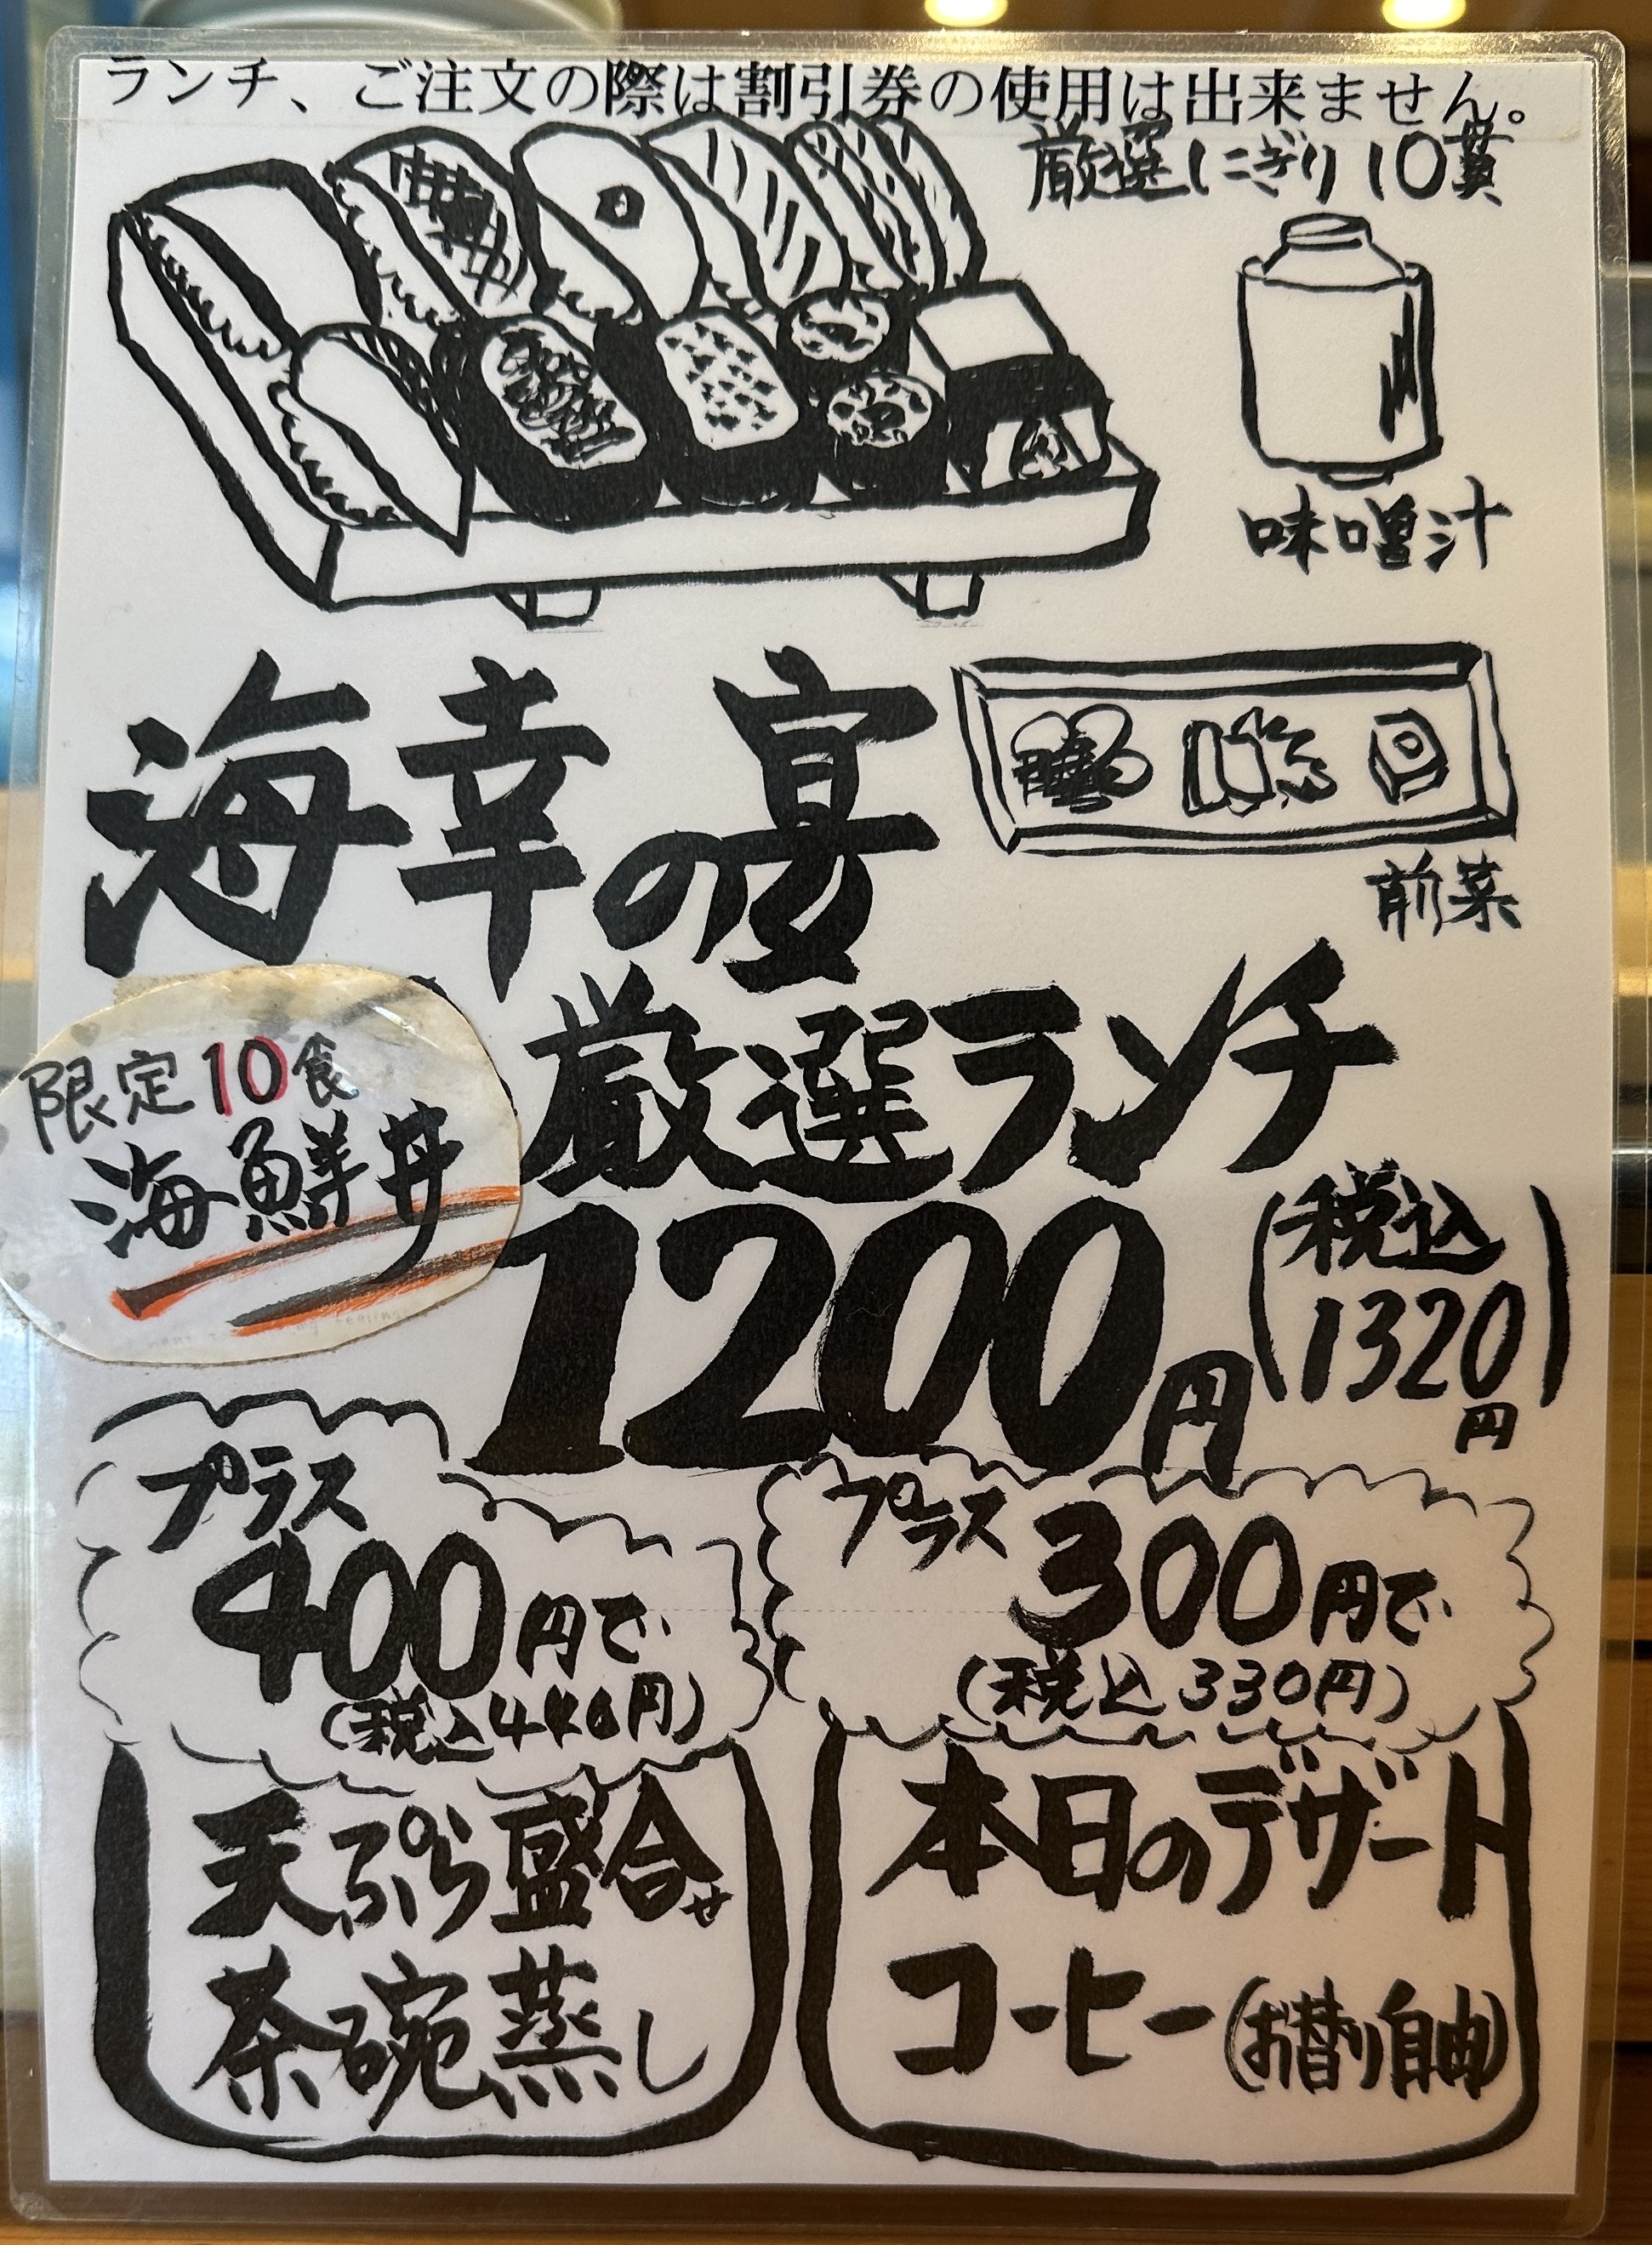 ランチ、ご注文の際は割引券の使用は出来ません。
厳選にぎり10貫
味噌汁
海幸の宴
前菜
厳選ランチ
限定10食
海鮮丼
1200円
(税込
1320
円)
プラス
400円で
(税込440円)
天ぷら盛合せ
茶碗蒸し
プラス
300円で
(税込330円)
本日のデザート
コーヒー(お替り自由)